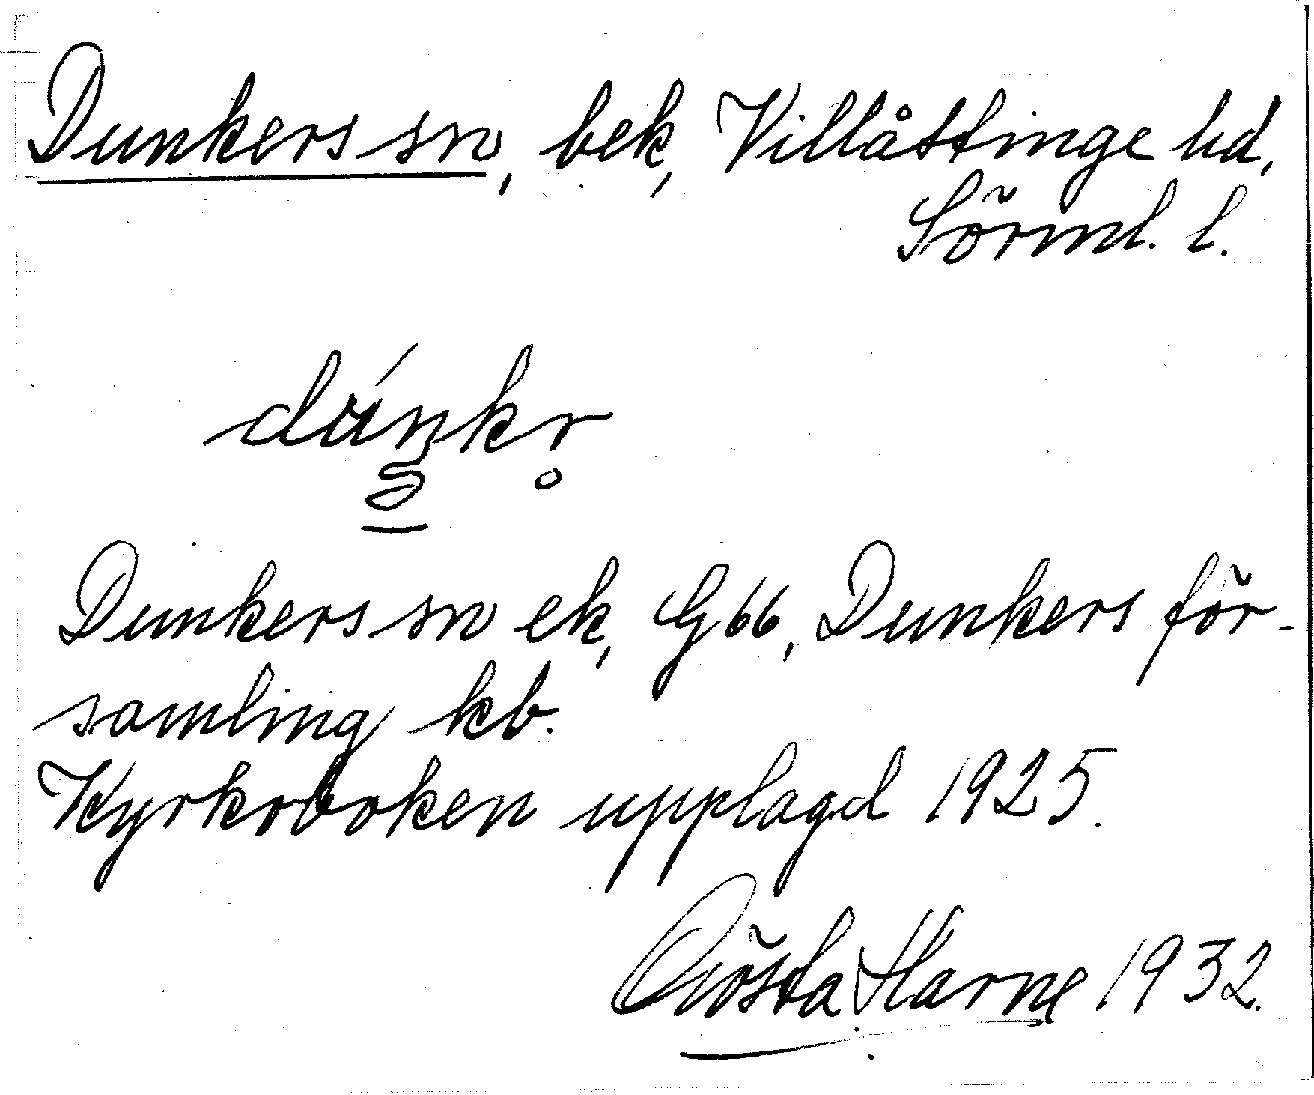 Dunkers sn, bek, Villåttinge hd,
Sörml. l.
dúnkr
Dunkers sn ek, G66, Dunkers för-
samling kb.
Kyrkoboken upplagd 1925.
Gösta Harne 1932.